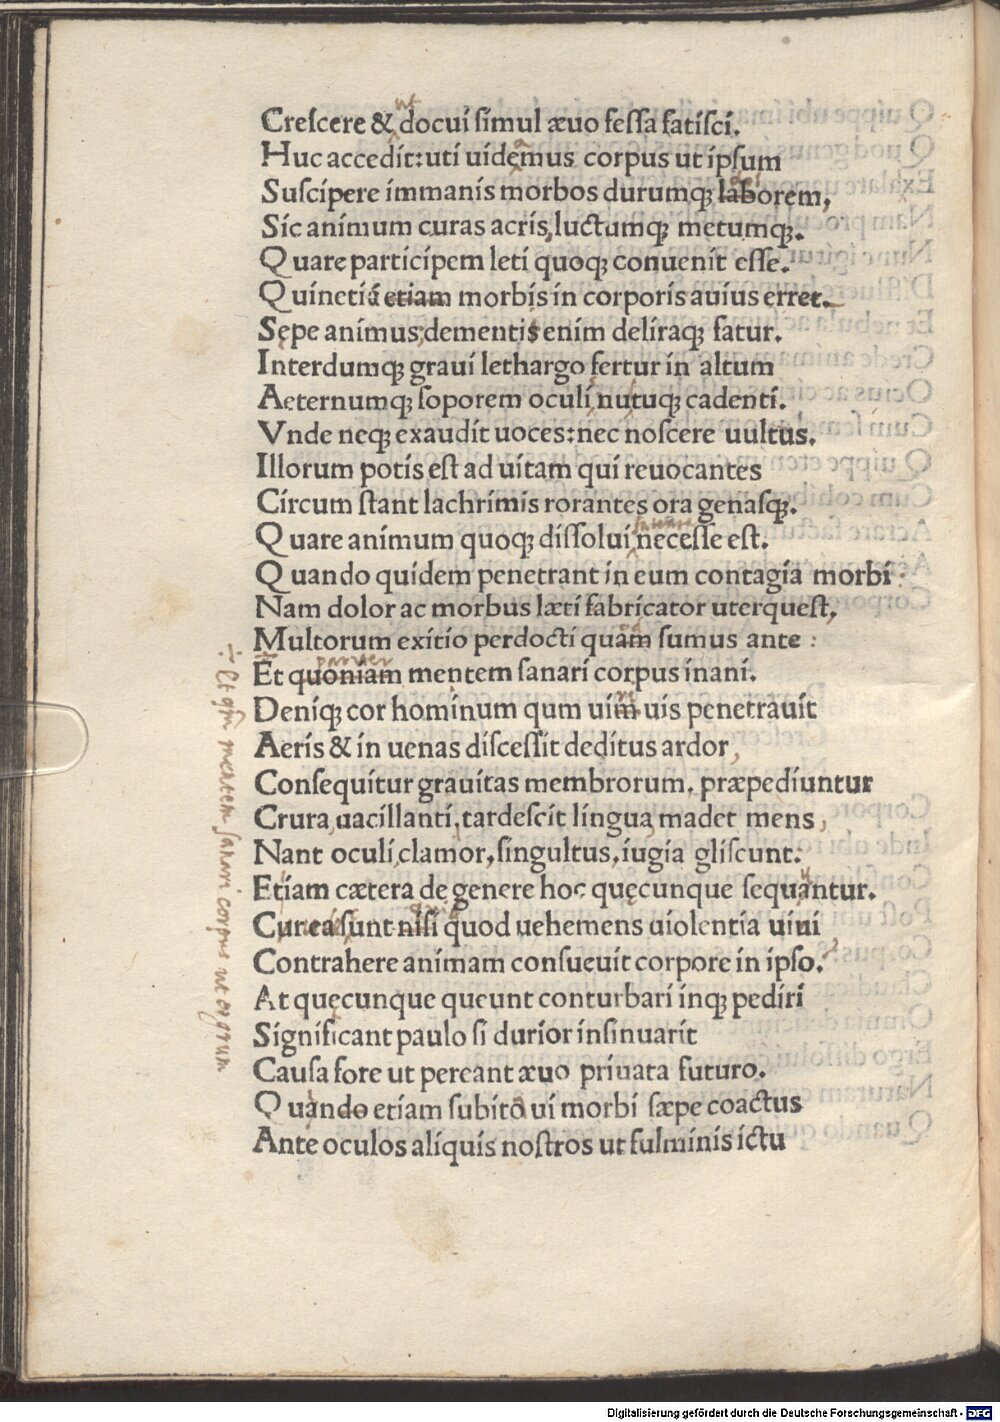 Creſcere & docui ſimul æuo feſſa fatiſci.
ut
Huc accedit: uti uidemus corpus ut ipſum
Suſcipere immanis morbos durumq; laborem,
dol
Sic animum curas acris, luctumq; metumq;.
Quare participem leti quoq; conuenit eſſe.
Quinetiã etiam morbis in corporis auius erret.
Sępe animus, dementis enim deliraq; fatur.
Interdumq; graui lethargo fertur in altum
Aeternumq; ſoporem oculi nutuq; cadenti.
Vnde neq; exaudit uoces: nec noſcere uultus.
Illorum potis eſt ad uitam qui reuocantes
Circum ſtant lachrimis rorantes ora genaſq;.
Quare animum quoq; diſſolui neceſſe eſt.
fateare
Quando quidem penetrant in eum contagia morbi:
Nam dolor ac morbus læti fabricator uterqueſt,
Multorum exitio perdocti quam ſumus ante :
Et quoniam mentem ſanari corpus inani.
pariter
÷ Et qm̃ mentem sanari corpus ut ægrum
Deniq; cor hominum qum uim uis penetrauit
ni
Aeris & in uenas diſceſſit deditus ardor,
Conſequitur grauitas membrorum, præpediuntur
Crura, uacillanti, tardeſcit lingua, madet mens,
Nant oculi, clamor, ſingultus, iugia gliſcunt:
Etiam cætera de genere hoc quęcunque ſequantur.
Cur ea ſunt niſi quod uehemens uiolentia uini
Contrahere animam conſueuit corpore in ipſo.?
At quęcunque queunt conturbari inq; pediri
Significant paulo ſi durior inſinuarit
Cauſa fore ut pereant æuo priuata futuro.
Quando etiam ſubito ui morbi ſæpe coactus
Ante oculos aliquis noſtros ut fulminis ictu
Digitalisierung gefördert durch die Deutsche Forschungsgemeinschaft - DFG